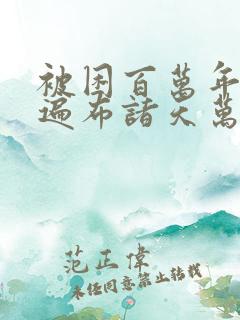 被困百萬年
遍布諸天萬
范正偉
未經同意禁止轉載